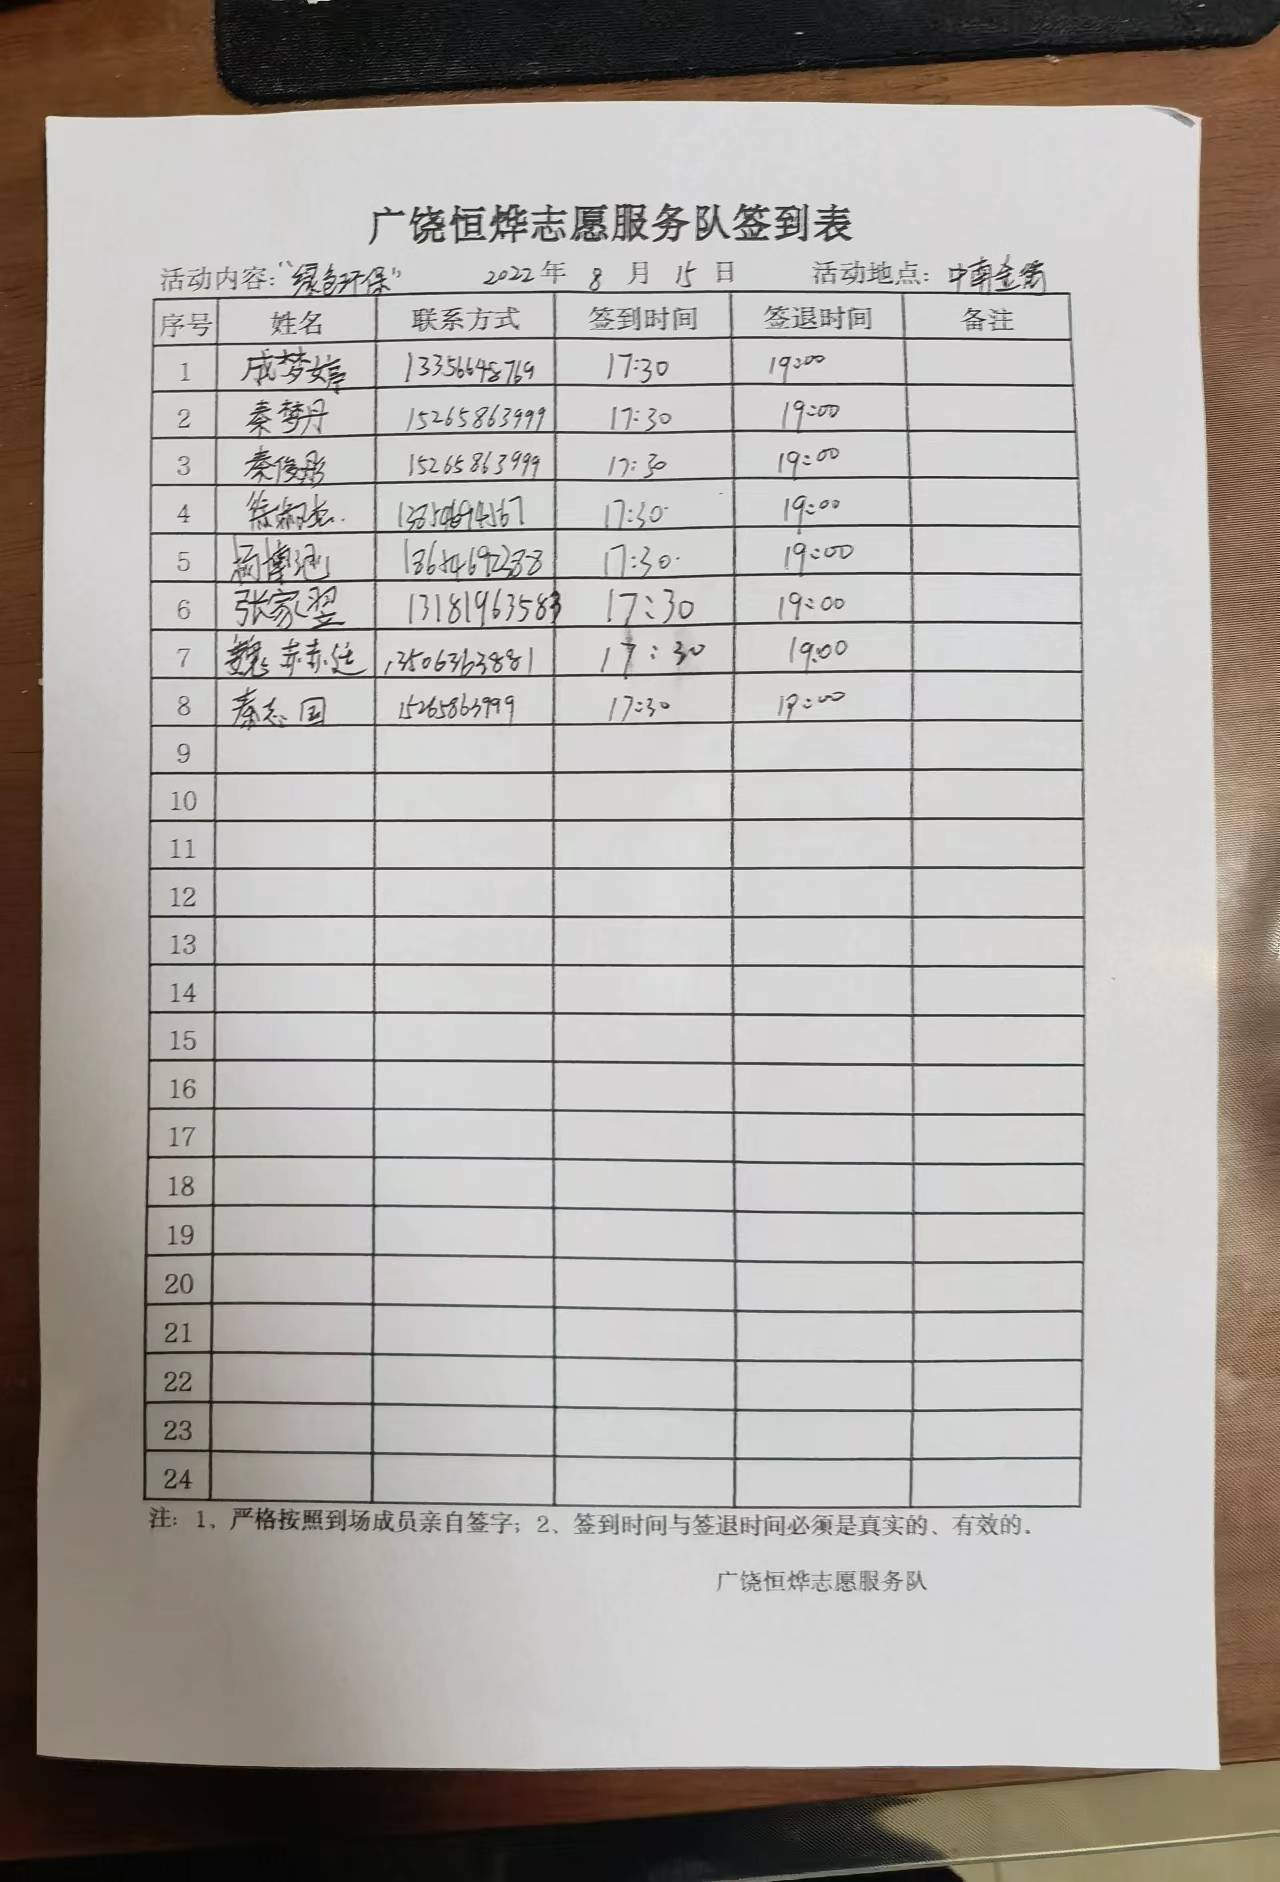 广饶恒烨志愿服务队签到表
活动内容：“绿色环保” 2022年 8 月 15 日 活动地点：中南金街
序号 姓名 联系方式 签到时间 签退时间 备注
1 成梦婷 13356648769 17:30 19:00
2 秦梦丹 15265863999 17:30 19:00
3 秦俊彤 15265863999 17:30 19:00
4 17:30 19:00
5 杨博涵 17:30 19:00
6 张家翌 13181963583 17:30 19:00
7 魏 13506363881 17:30 19:00
8 秦志国 15265863999 17:30 19:00
9
10
11
12
13
14
15
16
17
18
19
20
21
22
23
24
注：1、严格按照到场成员亲自签字；2、签到时间与签退时间必须是真实的、有效的.
广饶恒烨志愿服务队